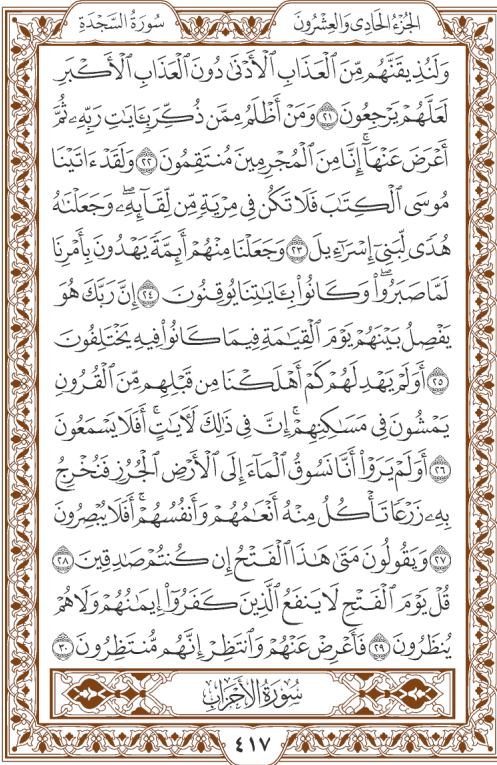 الجُزْءُ الحَادِي وَالعِشْرُونَ
سُورَةُ السَّجْدَةِ
وَلَنُذِيقَنَّهُم مِّنَ ٱلْعَذَابِ ٱلْأَدْنَىٰ دُونَ ٱلْعَذَابِ ٱلْأَكْبَرِ
لَعَلَّهُمْ يَرْجِعُونَ ٢١ وَمَنْ أَظْلَمُ مِمَّن ذُكِّرَ بِـَٔايَٰتِ رَبِّهِۦ ثُمَّ
أَعْرَضَ عَنْهَآۚ إِنَّا مِنَ ٱلْمُجْرِمِينَ مُنتَقِمُونَ ٢٢ وَلَقَدْ ءَاتَيْنَا
مُوسَى ٱلْكِتَٰبَ فَلَا تَكُن فِي مِرْيَةٍ مِّن لِّقَآئِهِۦۖ وَجَعَلْنَٰهُ
هُدًى لِّبَنِيٓ إِسْرَٰٓءِيلَ ٢٣ وَجَعَلْنَا مِنْهُمْ أَئِمَّةً يَهْدُونَ بِأَمْرِنَا
لَمَّا صَبَرُواْۖ وَكَانُواْ بِـَٔايَٰتِنَا يُوقِنُونَ ٢٤ إِنَّ رَبَّكَ هُوَ
يَفْصِلُ بَيْنَهُمْ يَوْمَ ٱلْقِيَٰمَةِ فِيمَا كَانُواْ فِيهِ يَخْتَلِفُونَ
٢٥ أَوَلَمْ يَهْدِ لَهُمْ كَمْ أَهْلَكْنَا مِن قَبْلِهِم مِّنَ ٱلْقُرُونِ
يَمْشُونَ فِي مَسَٰكِنِهِمْۚ إِنَّ فِي ذَٰلِكَ لَأٓيَٰتٍۚ أَفَلَا يَسْمَعُونَ
٢٦ أَوَلَمْ يَرَوْاْ أَنَّا نَسُوقُ ٱلْمَآءَ إِلَى ٱلْأَرْضِ ٱلْجُرُزِ فَنُخْرِجُ
بِهِۦ زَرْعًا تَأْكُلُ مِنْهُ أَنْعَٰمُهُمْ وَأَنفُسُهُمْۚ أَفَلَا يُبْصِرُونَ
٢٧ وَيَقُولُونَ مَتَىٰ هَٰذَا ٱلْفَتْحُ إِن كُنتُمْ صَٰدِقِينَ ٢٨
قُلْ يَوْمَ ٱلْفَتْحِ لَا يَنفَعُ ٱلَّذِينَ كَفَرُوٓاْ إِيمَٰنُهُمْ وَلَا هُمْ
يُنظَرُونَ ٢٩ فَأَعْرِضْ عَنْهُمْ وَٱنتَظِرْ إِنَّهُم مُّنتَظِرُونَ ٣٠
سُورَةُ الأَحْزَابِ
٤١٧